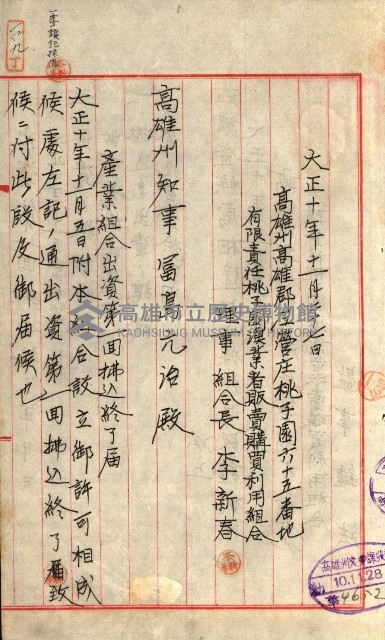 大正十年十一月 日
高雄州高雄郡左營庄桃子園六十五番地
有限責任桃子園漁業者販賣購買利用組合
理事 組合長 李新春
高雄州知事冨島元治殿
產業組合出資第一回拂込終了屆
大正十年十一月五日附本組合設立御許可相成
候處左記ノ通出資第一回拂込終了屆致
候ニ付此段及御届候也
高雄市立歷史博物館
KAOHSIUNG MUSEUM OF HISTORY
10.11.28